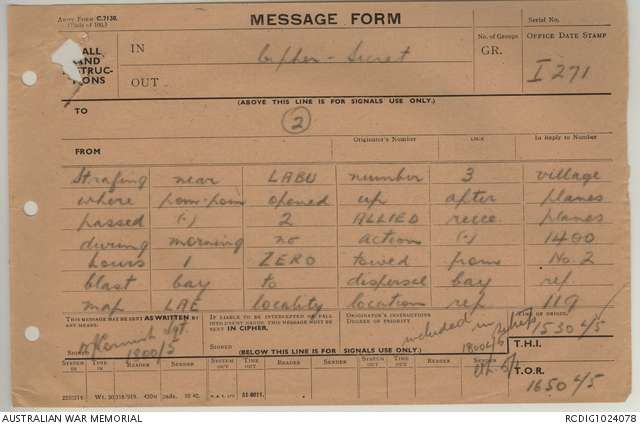 Army Form C.2136.
(Pads of 100.)
MESSAGE FORM
Serial No.
CALL
AND
INSTRUC-
TIONS
IN
Cipher - Secret
No. of Groups
GR.
OFFICE DATE STAMP
I 271
OUT
(ABOVE THIS LINE IS FOR SIGNALS USE ONLY.)
TO
(2)
FROM
Originator's Number
Date
In Reply to Number
Strafing near LABU number 3 village
where pom-pom opened up after planes
passed (.) 2 ALLIED recce planes
during morning no action (.) 1400
hours 1 ZERO towed from No. 2
blast bay to dispersal bay ref
map LAE locality location ref. 119
THIS MESSAGE MAY BE SENT AS WRITTEN BY
ANY MEANS.
IF LIABLE TO BE INTERCEPTED OR FALL
INTO ENEMY HANDS, THIS MESSAGE MUST BE
SENT IN CIPHER.
ORIGINATOR'S INSTRUCTIONS
DEGREE OF PRIORITY
TIME OF ORIGIN.
included in
1530 4/5
Signed
Sgt.
1800/5
SIGNED
(BELOW THIS LINE IS FOR SIGNALS USE ONLY.)
T.H.I.
SYSTEM IN
TIME IN
READER
SENDER
SYSTEM OUT
TIME OUT
READER
SENDER
SYSTEM OUT
TIME OUT
READER
SENDER
T.O.R.
1650 4/5
AUSTRALIAN WAR MEMORIAL
RCDIG1024078